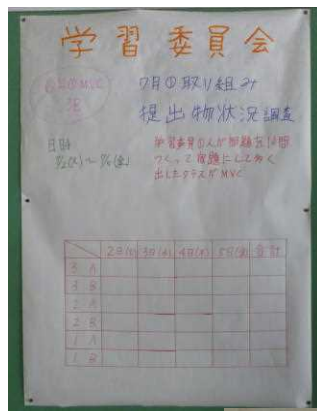 学習委員会
7月の取り組み
提出物状況調査
日時
7/2(火)〜7/5(金)
学習委員の人が問題を
つくって宿題にして多く
出したクラスがMVC
2日(火) 3日(水) 4日(木) 5日(金) 合計
3 A
3 B
2 A
2 B
1 A
1 B